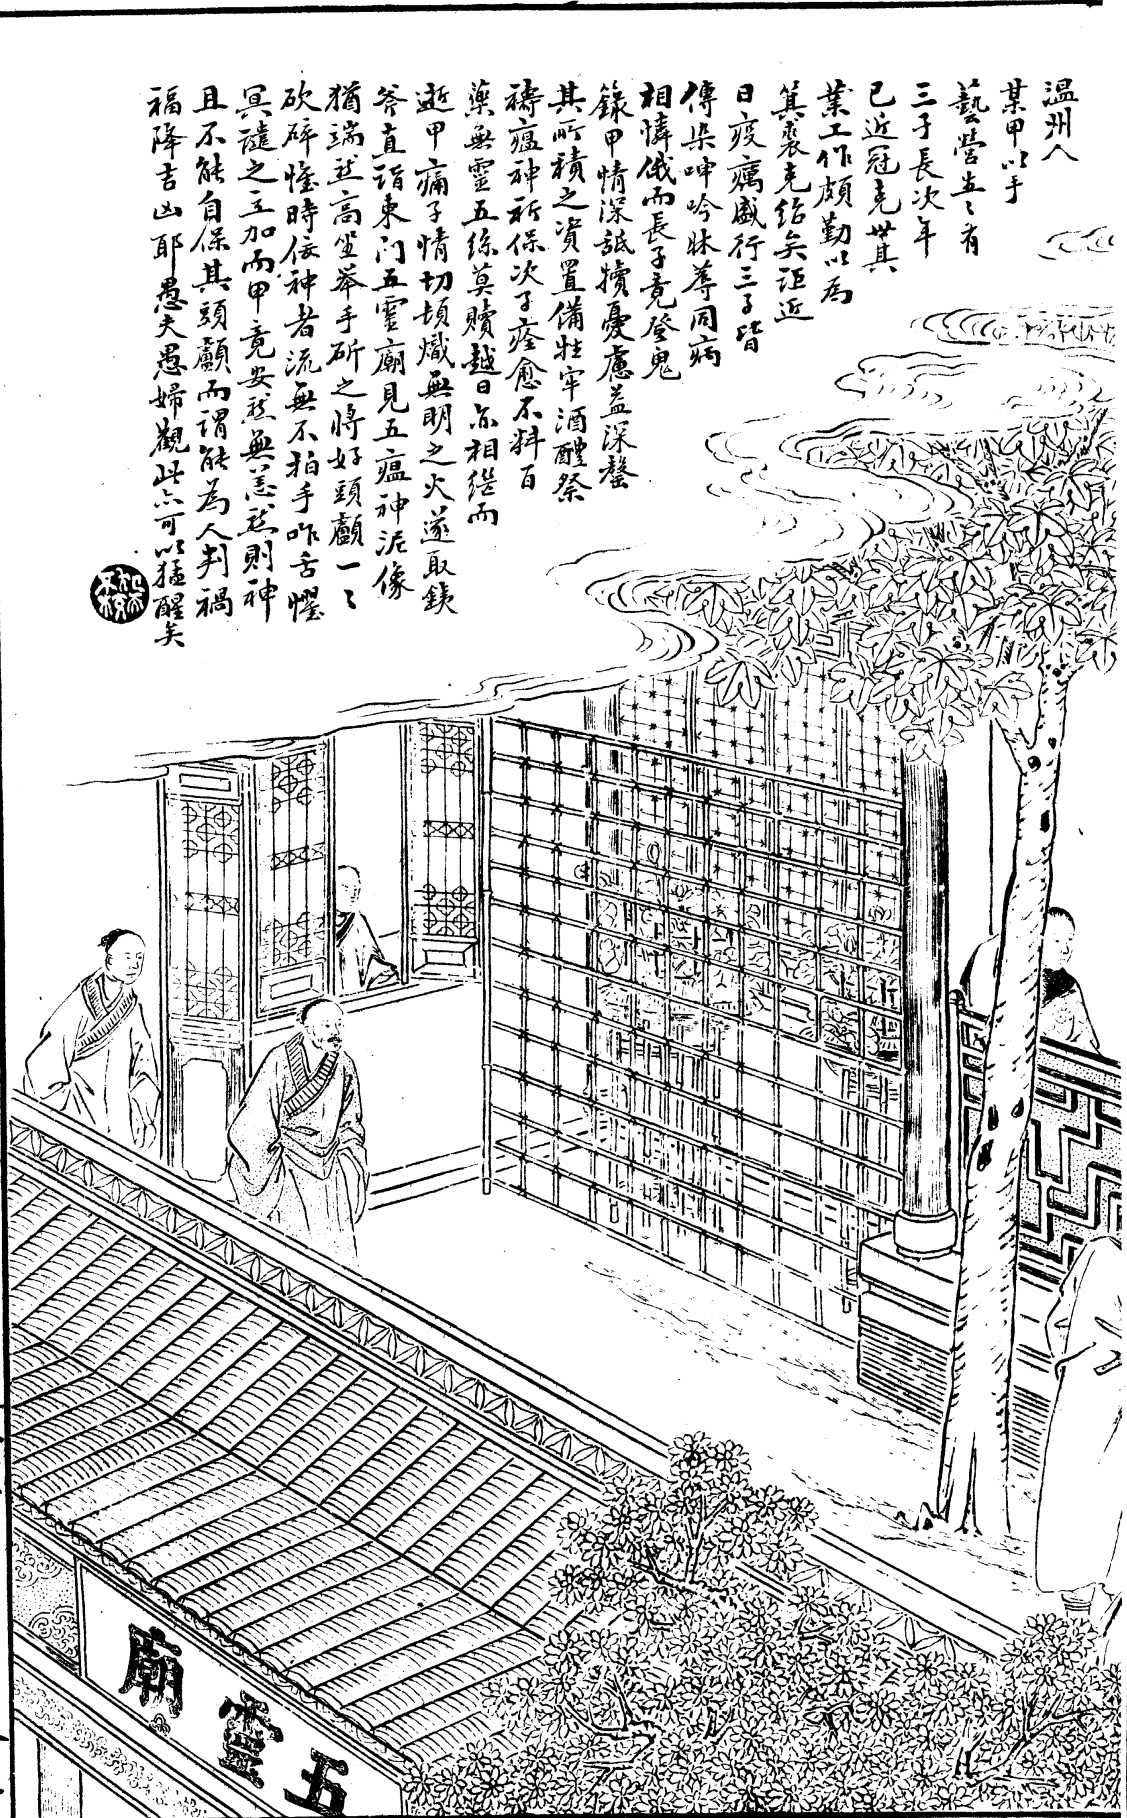 温州人
某甲以手
藝營生々有
三子長次年
已近冠克世其
業工作頗勤以為
箕裘克紹矣詎近
日疫癘盛行三子皆
傳染呻吟牀蓐同病
相憐俄而長子竟登鬼
籙甲情深舐犢憂慮益深罄
其所積之資置備牲牢酒醴祭
禱瘟神祈保次子痊愈不料百
藥無靈五絲莫贖越日亦相繼而
逝甲痛子情切頓熾無明之火遂取鉄
斧直詣東门五靈廟見五瘟神泥像
猶端然高坐举手斫之將好頭顱一々
砍碎惟時佞神者流無不拍手咋舌懼
冥譴之立加而甲竟安然無恙然則神
且不能自保其頭顱而謂能為人判禍
福降吉凶耶愚夫愚婦觀此亦可以猛醒矣
五靈廟